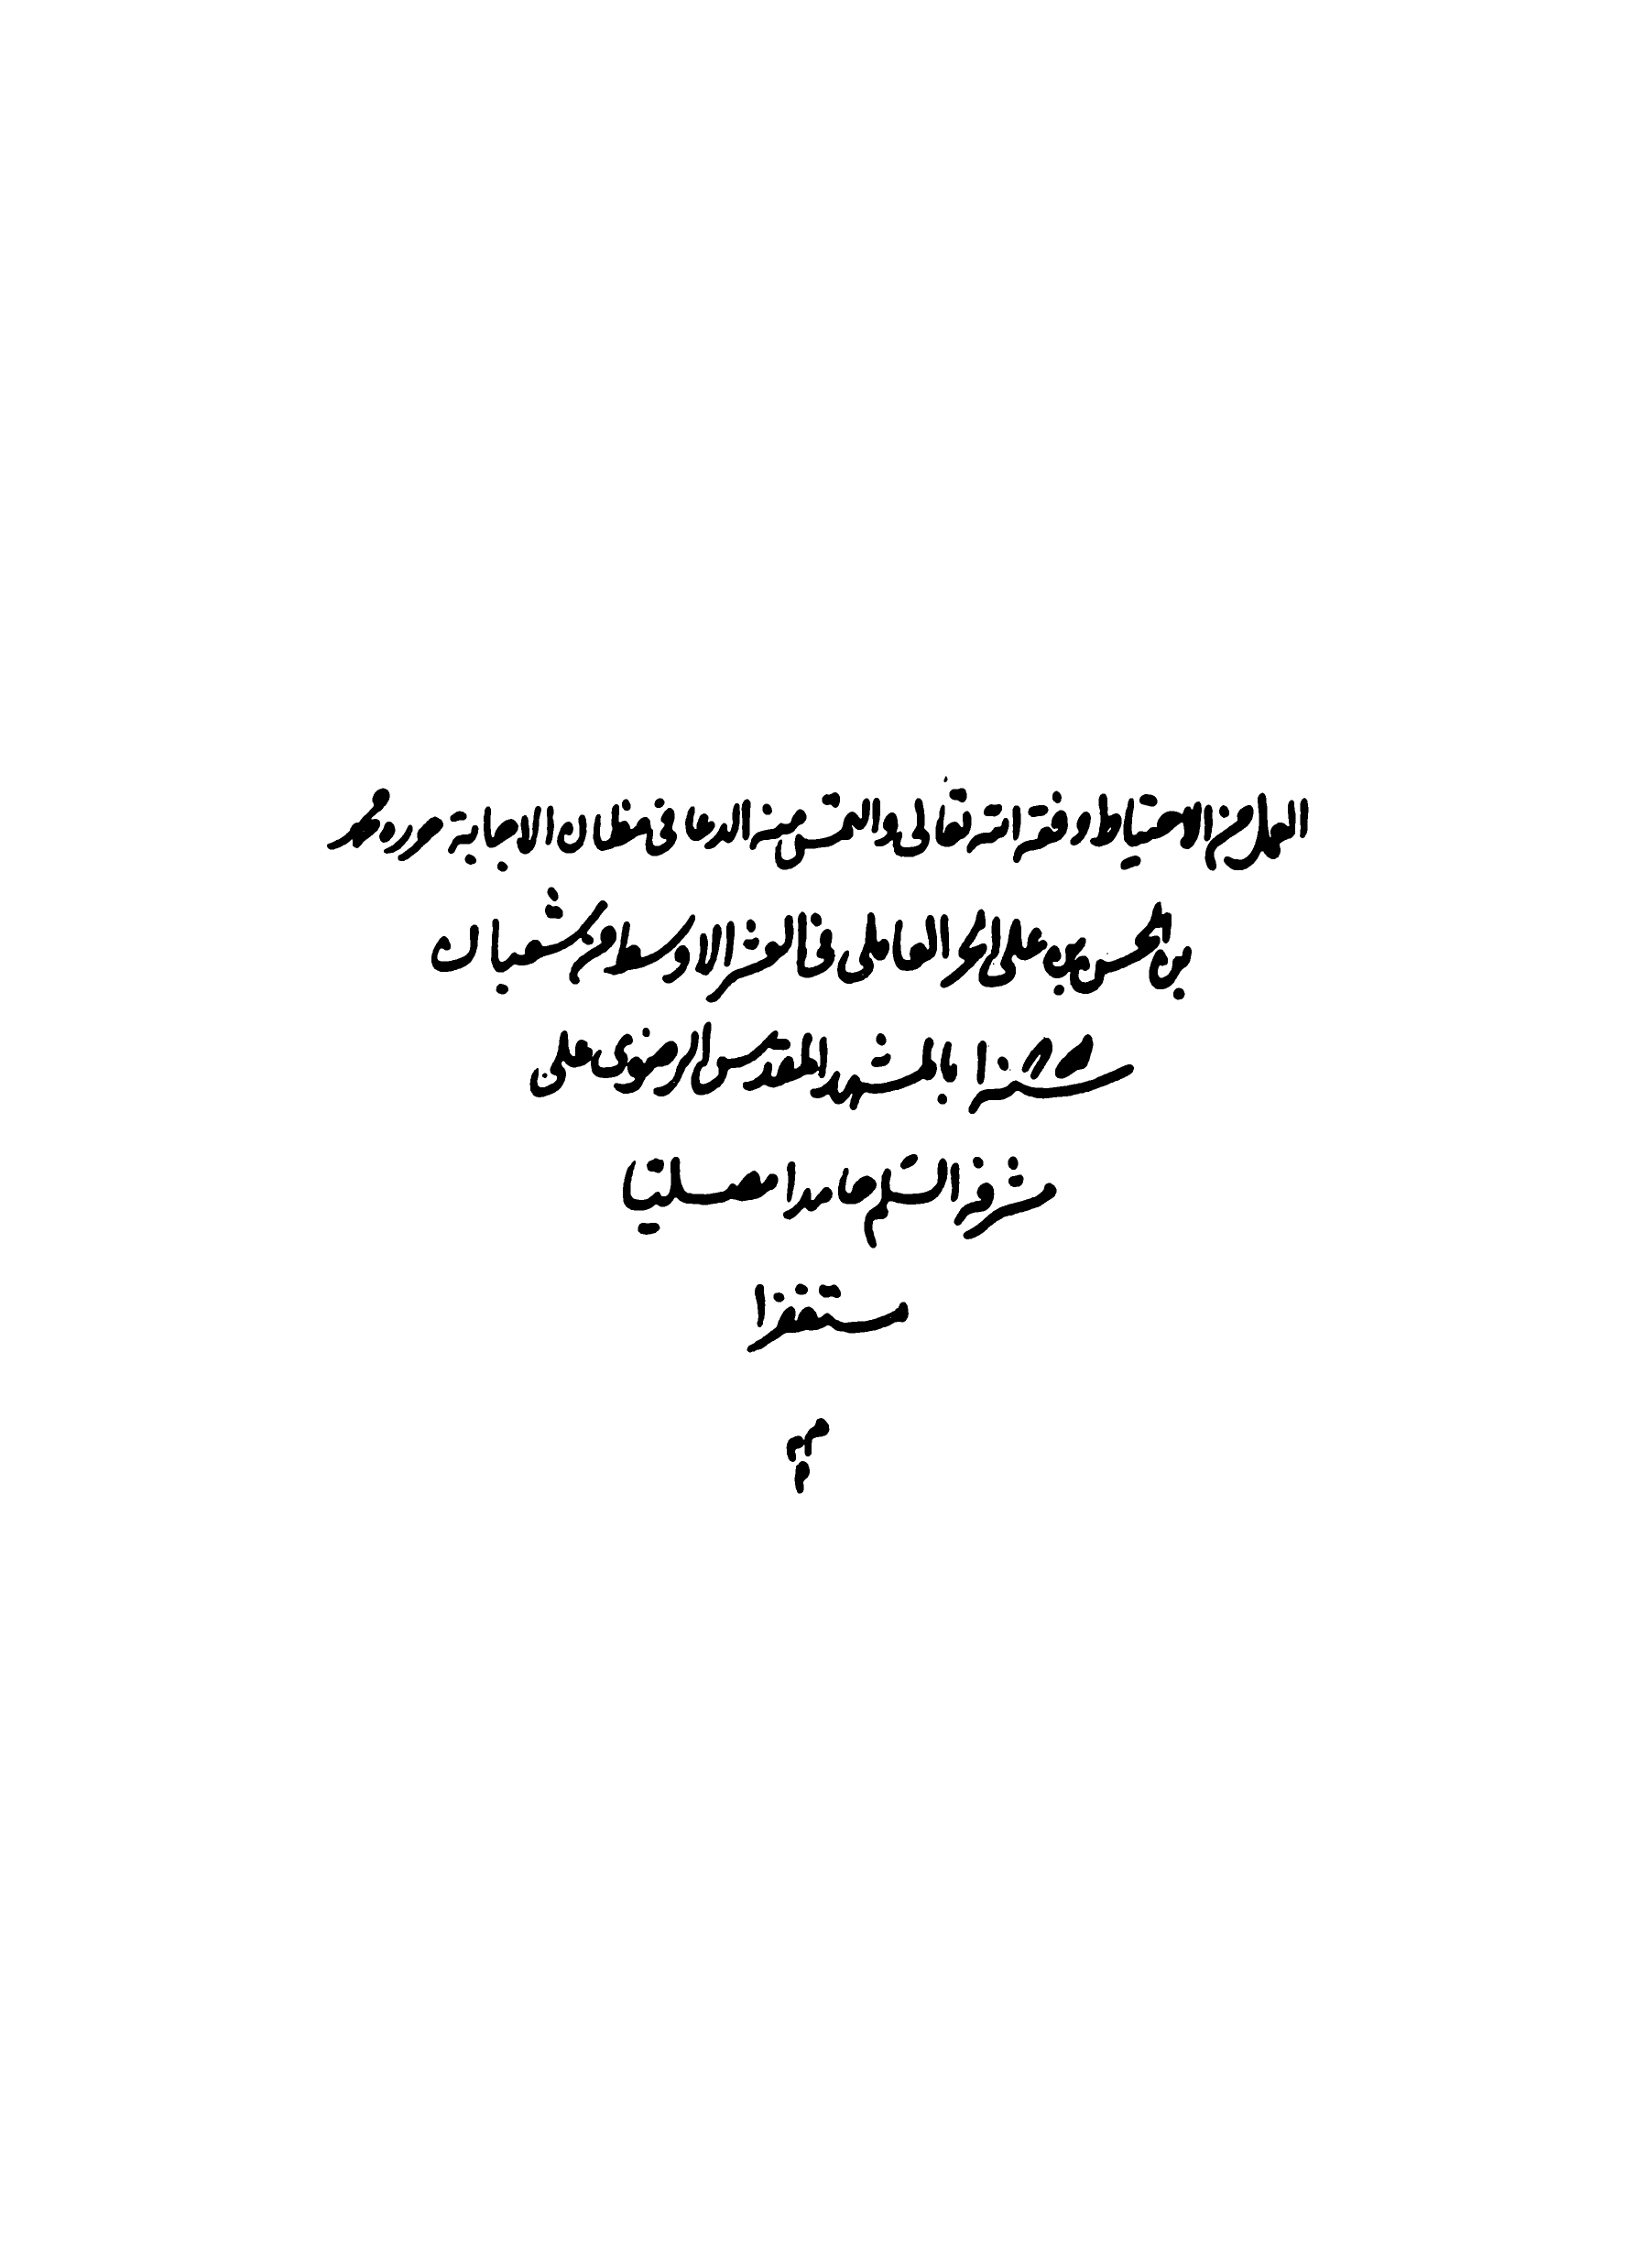 العمل من الاحتياط وفقه الله تعالى والتمس منه الدعا في مظان الاجابة حرره محمد
بن الحسن بن علي الحر العاملي في العشر الاوسط من شعبان
سنة بالمشهد المقدس الرضوي على
مشرفه السلم حامدا مصليا
مستغفرا